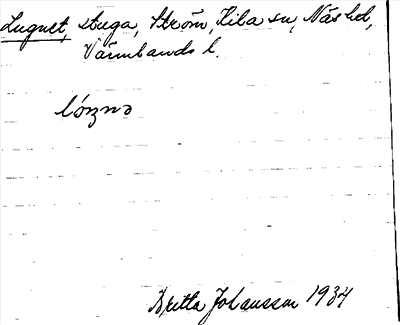 Lugnet, stuga, Ström, Kila sn, Näs hd,
Värmlands l.
lo´ŋnə
Britta Johansson 1934